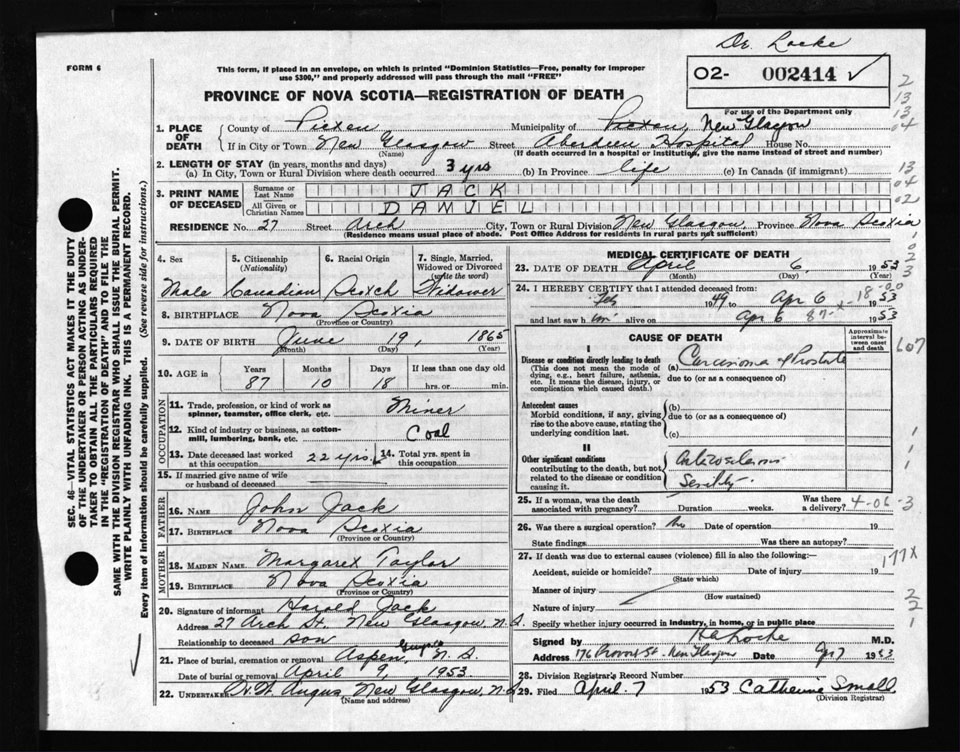 Dr. Locke
FORM 6
This form, if placed in an envelope, on which is printed "Dominion Statistics—Free, penalty for improper
use $300," and properly addressed will pass through the mail "FREE"
02- 002414 ✓
For use of the Department only
PROVINCE OF NOVA SCOTIA—REGISTRATION OF DEATH
2
13
13
04
1. PLACE OF DEATH
County of Pictou Municipality of Pictou, New Glasgow
If in City or Town New Glasgow Street Aberdeen Hospital House No.
(Name) (If death occurred in a hospital or institution, give the name instead of street and number)
2. LENGTH OF STAY (in years, months and days)
(a) In City, Town or Rural Division where death occurred 3 yrs (b) In Province life (c) In Canada (if immigrant)
13
04
02
3. PRINT NAME OF DECEASED
Surname or Last Name JACK
All Given or Christian Names DANIEL
RESIDENCE No. 27 Street Arch City, Town or Rural Division New Glasgow, Province Nova Scotia
(Residence means usual place of abode. Post Office Address for residents in rural parts not sufficient)
SEC. 46—VITAL STATISTICS ACT MAKES IT THE DUTY
OF THE UNDERTAKER OR PERSON ACTING AS UNDER-
TAKER TO OBTAIN ALL THE PARTICULARS REQUIRED
IN THE "REGISTRATION OF DEATH" AND TO FILE THE
SAME WITH THE DIVISION REGISTRAR WHO SHALL ISSUE THE BURIAL PERMIT.
WRITE PLAINLY WITH UNFADING INK. THIS IS A PERMANENT RECORD.
Every item of information should be carefully supplied. (See reverse side for instructions.)
4. Sex
Male
5. Citizenship
(Nationality)
Canadian
6. Racial Origin
Scotch
7. Single, Married,
Widowed or Divorced
(write the word)
Widower
8. BIRTHPLACE Nova Scotia
(Province or Country)
9. DATE OF BIRTH June 19, 1865
(Month) (Day) (Year)
10. AGE in
Years Months Days If less than one day old
87 10 18 hrs. or min.
OCCUPATION
11. Trade, profession, or kind of work as
spinner, teamster, office clerk, etc. Miner
12. Kind of industry or business, as cotton-
mill, lumbering, bank, etc. Coal
13. Date deceased last worked
at this occupation 22 yrs.
14. Total yrs. spent in
this occupation
15. If married give name of wife
or husband of deceased
FATHER
16. NAME John Jack
17. BIRTHPLACE Nova Scotia
(Province or Country)
MOTHER
18. MAIDEN NAME Margaret Taylor
19. BIRTHPLACE Nova Scotia
(Province or Country)
20. Signature of informant Harold Jack
Address 27 Arch St. New Glasgow, N.S.
Relationship to deceased son
21. Place of burial, cremation or removal Aspen, N.S.
Date of burial or removal April 9, 1953.
22. UNDERTAKER New Glasgow, N.S.
(Name and address)
MEDICAL CERTIFICATE OF DEATH
23. DATE OF DEATH April 6, 1953
(Month) (Day) (Year)
24. I HEREBY CERTIFY that I attended deceased from:
Feb 1949 to Apr 6 1953
and last saw him alive on Apr 6 1953
CAUSE OF DEATH
Approximate
interval be-
tween onset
and death
I
Disease or condition directly leading to death
(This does not mean the mode of
dying, e.g., heart failure, asthenia,
etc. It means the disease, injury, or
complication which caused death.)
(a) Carcinoma Prostate
due to (or as a consequence of)
Antecedent causes
Morbid conditions, if any, giving
rise to the above cause, stating the
underlying condition last.
(b)
due to (or as a consequence of)
(c)
II
Other significant conditions
contributing to the death, but not
related to the disease or condition
causing it.
Arteriosclerosis
Senility
25. If a woman, was the death
associated with pregnancy? Duration weeks. Was there
a delivery?
4-06-3
26. Was there surgical operation? No Date of operation 19
State findings Was there an autopsy?
27. If death was due to external causes (violence) fill in also the following:—
177X
Accident, suicide or homicide? Date of injury 19
(State which)
Manner of injury
(How sustained)
Nature of injury
Specify whether injury occurred in industry, in home, or in public place
2
2
1
Signed by Locke M.D.
Address 176 Provost St. New Glasgow Date Apr 7 1953
28. Division Registrar's Record Number
29. Filed April 7 1953 Catherine Small
(Division Registrar)